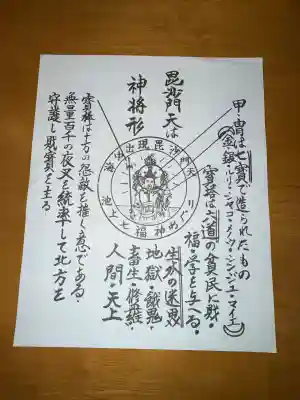 甲冑は七寳で造られたもの
(金・銀・ルリ・シャコ・メノウ・シンジュ・マイエ)
寳塔は六道の貧民に財・
福・学を与へる・
生かの迷界
地獄・餓鬼・
畜生・修羅・
人間・天上
毘沙門天は
神将形
出現毘沙門天
りやめ神福七と池
寳棒は十方の怨敵を摧く意である・
無量百千の夜叉を統率して北方を
守護し財寳を主る